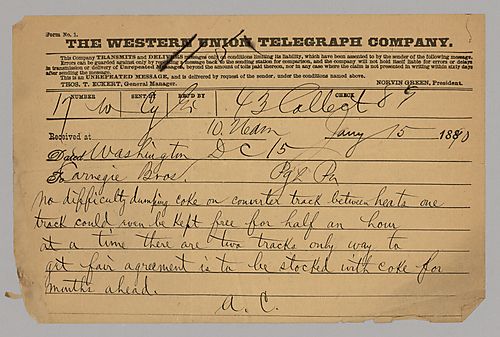 Form No. 1.
THE WESTERN UNION TELEGRAPH COMPANY.
This Company TRANSMITS and DELIVERS messages only on conditions limiting its liability, which have been assented to by the sender of the following message.
Errors can be guarded against only by repeating a message back to the sending station for comparison, and the company will not hold itself liable for errors or delays
in transmission or delivery of Unrepeated Messages, beyond the amount of tolls paid thereon, nor in any case where the claim is not presented in writing within sixty days
after sending the message.
This is an UNREPEATED MESSAGE, and is delivered by request of the sender, under the conditions named above.
THOS. T. ECKERT, General Manager. NORVIN GREEN, President.
NUMBER SENT BY REC'D BY CHECK
17 W Cy 43 Collect 89
Received at 10. am Jany 15 188
Dated Washington D C 15
To Carnegie Bros Pgh Pa
No difficulty dumping coke on converter track between heats one
track could even be kept free for half an hour
at a time there are two tracks only way to
get fair agreement is to be stocked with coke for
months ahead.
A. C.